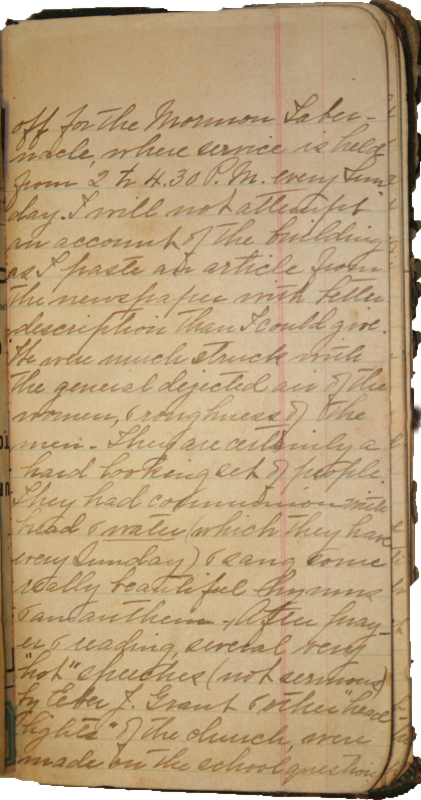 off for the Mormon Taber-
nacle, where service is held
from 2 to 4.30 P.M. every Sun
day. I will not attempt
an account of the building
as I paste an article from
the newspaper with better
description than I could give.
We were much struck with
the general dejected air of the
women, & roughness of the
men. They are certainly a
hard looking set of people.
They had communion with
bread & water (which they have
every Sunday) & sang some
really beautiful hymns
& an anthem. After pray-
er & reading, several very
"hot" speeches (not sermons)
by Eber J. Grant & other "head
lights" of the church, were
made on the school question